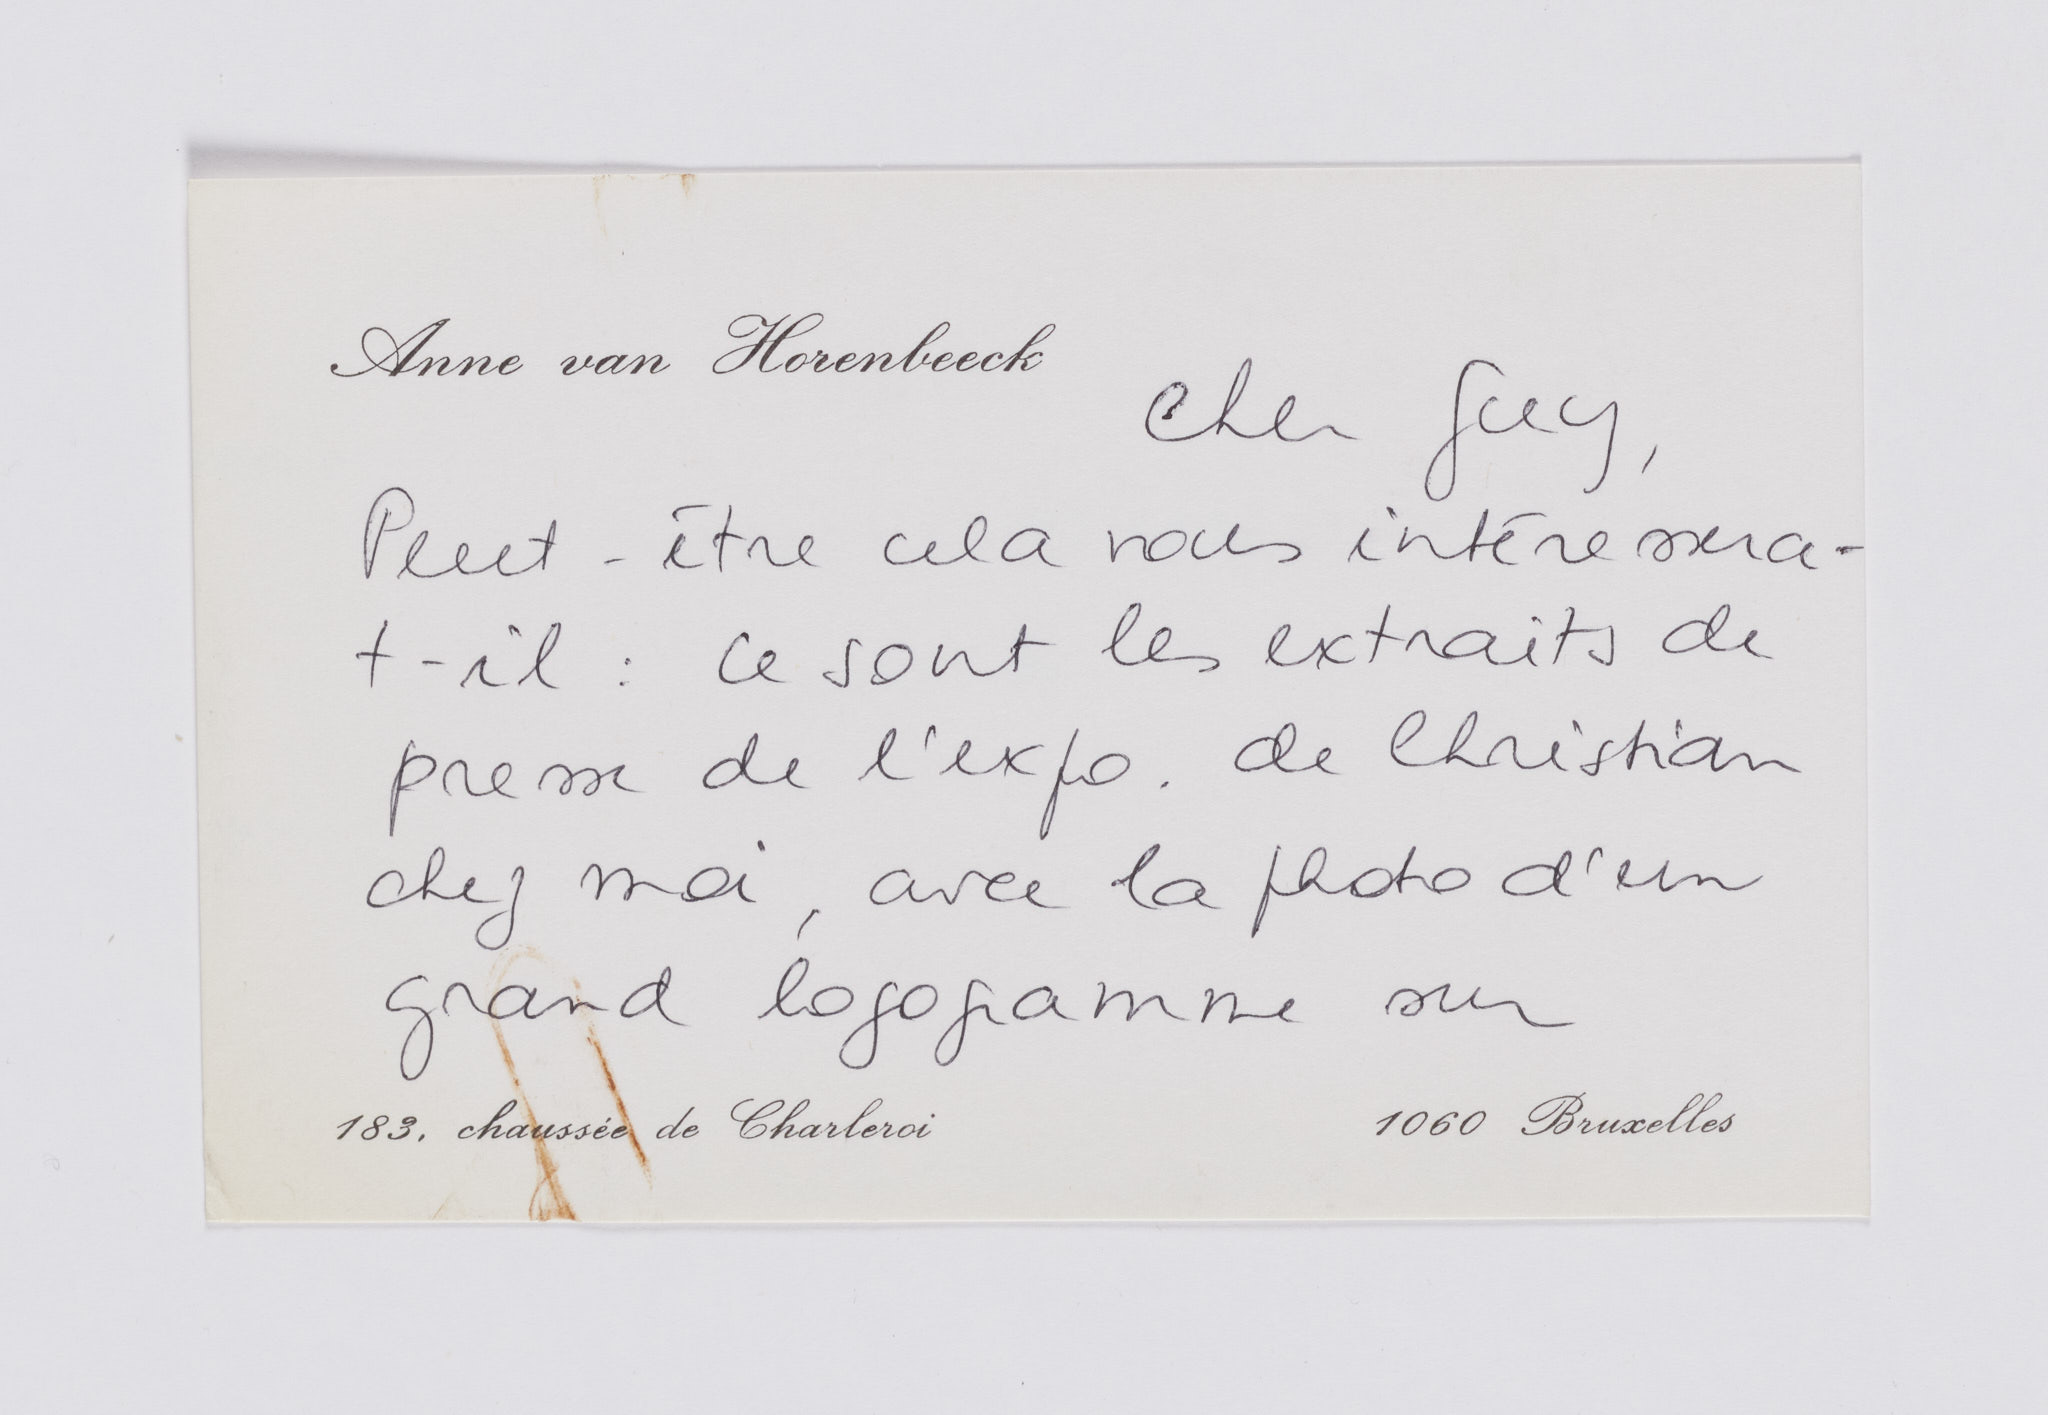 Anne van Horenbeeck
Cher Guy,
Peut-être cela vous intéressera-
t-il : ce sont les extraits de
presse de l'expo. de Christian
chez moi, avec la photo d'un
grand logogramme sur
183, chaussée de Charleroi
1060 Bruxelles